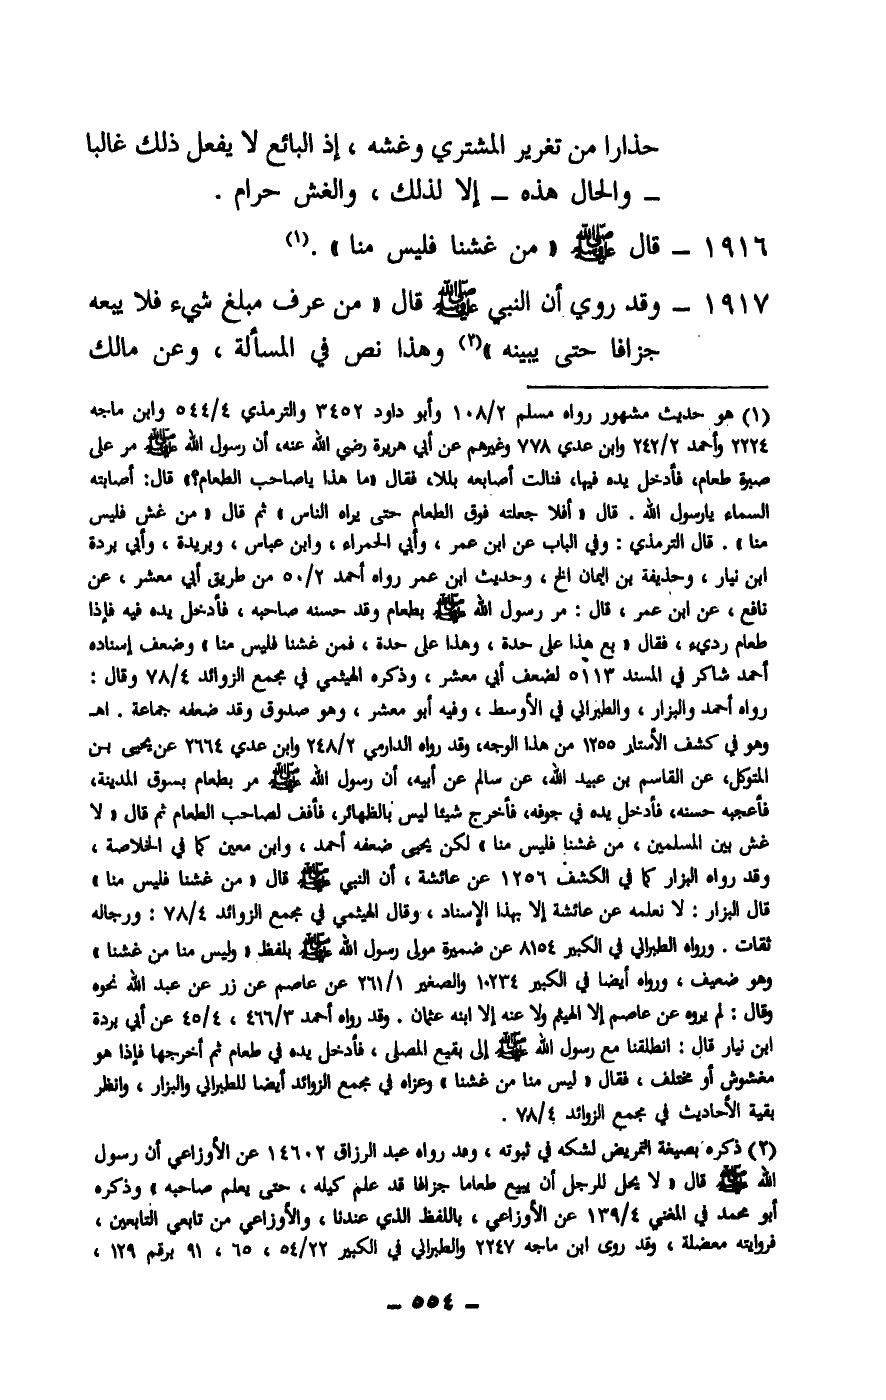 حذارا من تغرير المشتري وغشه ، إذ البائع لا يفعل ذلك غالبا
– والحال هذه – إلا لذلك ، والغش حرام .
١٩١٦ – قال ﷺ « من غشنا فليس منا » .(١)
١٩١٧ – وقد روي أن النبي ﷺ قال « من عرف مبلغ شيء فلا يبعه
جزافا حتى يبينه »(٢) وهذا نص في المسألة ، وعن مالك
(١) هو حديث مشهور رواه مسلم ١٠٨/٢ وأبو داود ٣٤٥٢ والترمذي ٥٤٤/٤ وابن ماجه
٢٢٢٤ وأحمد ٢٤٢/٢ وابن عدي ٧٧٨ وغيرهم عن أبي هريرة رضي الله عنه، أن رسول الله ﷺ مر على
صبرة طعام، فأدخل يده فيها، فنالت أصابعه بللا، فقال «ما هذا ياصاحب الطعام؟» قال: أصابته
السماء يارسول الله . قال « أفلا جعلته فوق الطعام حتى يراه الناس » ثم قال « من غش فليس
منا » . قال الترمذي : وفي الباب عن ابن عمر ، وأبي الحمراء ، وابن عباس ، وبريدة ، وأبي بردة
ابن نيار ، وحذيفة بن اليمان الخ ، وحديث ابن عمر رواه أحمد ٥٠/٢ من طريق أبي معشر ، عن
نافع ، عن ابن عمر ، قال : مر رسول الله ﷺ بطعام وقد حسنه صاحبه ، فأدخل يده فيه فإذا
طعام رديء ، فقال « بع هذا على حدة ، وهذا على حدة ، فمن غشنا فليس منا » وضعف إسناده
أحمد شاكر في المسند ٥١١٣ لضعف أبي معشر ، وذكره الهيثمي في مجمع الزوائد ٧٨/٤ وقال :
رواه أحمد والبزار ، والطبراني في الأوسط ، وفيه أبو معشر ، وهو صدوق وقد ضعفه جماعة . اهـ
وهو في كشف الأستار ١٢٥٥ من هذا الوجه، وقد رواه الدارمي ٢٤٨/٢ وابن عدي ٢٦٦٤ عن يحيى بن
المتوكل، عن القاسم بن عبيد الله، عن سالم عن أبيه، أن رسول الله ﷺ مر بطعام بسوق المدينة،
فأعجبه حسنه، فأدخل يده في جوفه، فأخرج شيئا ليس بالظهائر، فأفف لصاحب الطعام ثم قال « لا
غش بين المسلمين ، من غشنا فليس منا » لكن يحيى ضعفه أحمد ، وابن معين كما في الخلاصة ،
وقد رواه البزار كما في الكشف ١٢٥٦ عن عائشة ، أن النبي ﷺ قال « من غشنا فليس منا »
قال البزار : لا نعلمه عن عائشة إلا بهذا الإسناد ، وقال الهيثمي في مجمع الزوائد ٧٨/٤ : ورجاله
ثقات . ورواه الطبراني في الكبير ٨١٥٤ عن ضميرة مولى رسول الله ﷺ بلفظ « وليس منا من غشنا »
وهو ضعيف ، ورواه أيضا في الكبير ١٠٢٣٤ والصغير ٢٦١/١ عن عاصم عن زر عن عبد الله نحوه
وقال : لم يروه عن عاصم إلا الهيثم ولا عنه إلا ابنه عثمان . وقد رواه أحمد ٤٦٦/٣ ، ٤٥/٤ عن أبي بردة
ابن نيار قال : انطلقنا مع رسول الله ﷺ إلى بقيع المصلى ، فأدخل يده في طعام ثم أخرجها فإذا هو
مغشوش أو مختلف ، فقال « ليس منا من غشنا » وعزاه في مجمع الزوائد أيضا للطبراني والبزار ، وانظر
بقية الأحاديث في مجمع الزوائد ٧٨/٤ .
(٢) ذكره بصيغة التمريض لشكه في ثبوته ، وقد رواه عبد الرزاق ١٤٦٠٢ عن الأوزاعي أن رسول
الله ﷺ قال « لا يحل للرجل أن يبيع طعاما جزافا قد علم كيله ، حتى يعلم صاحبه » وذكره
أبو محمد في المغني ١٣٩/٤ عن الأوزاعي ، باللفظ الذي عندنا ، والأوزاعي من تابعي التابعين ،
فروايته معضلة ، وقد روى ابن ماجه ٢٢٤٧ والطبراني في الكبير ٥٤/٢٢ ، ٦٥ ، ٩١ برقم ١٢٩ ،
– ٥٥٤ –